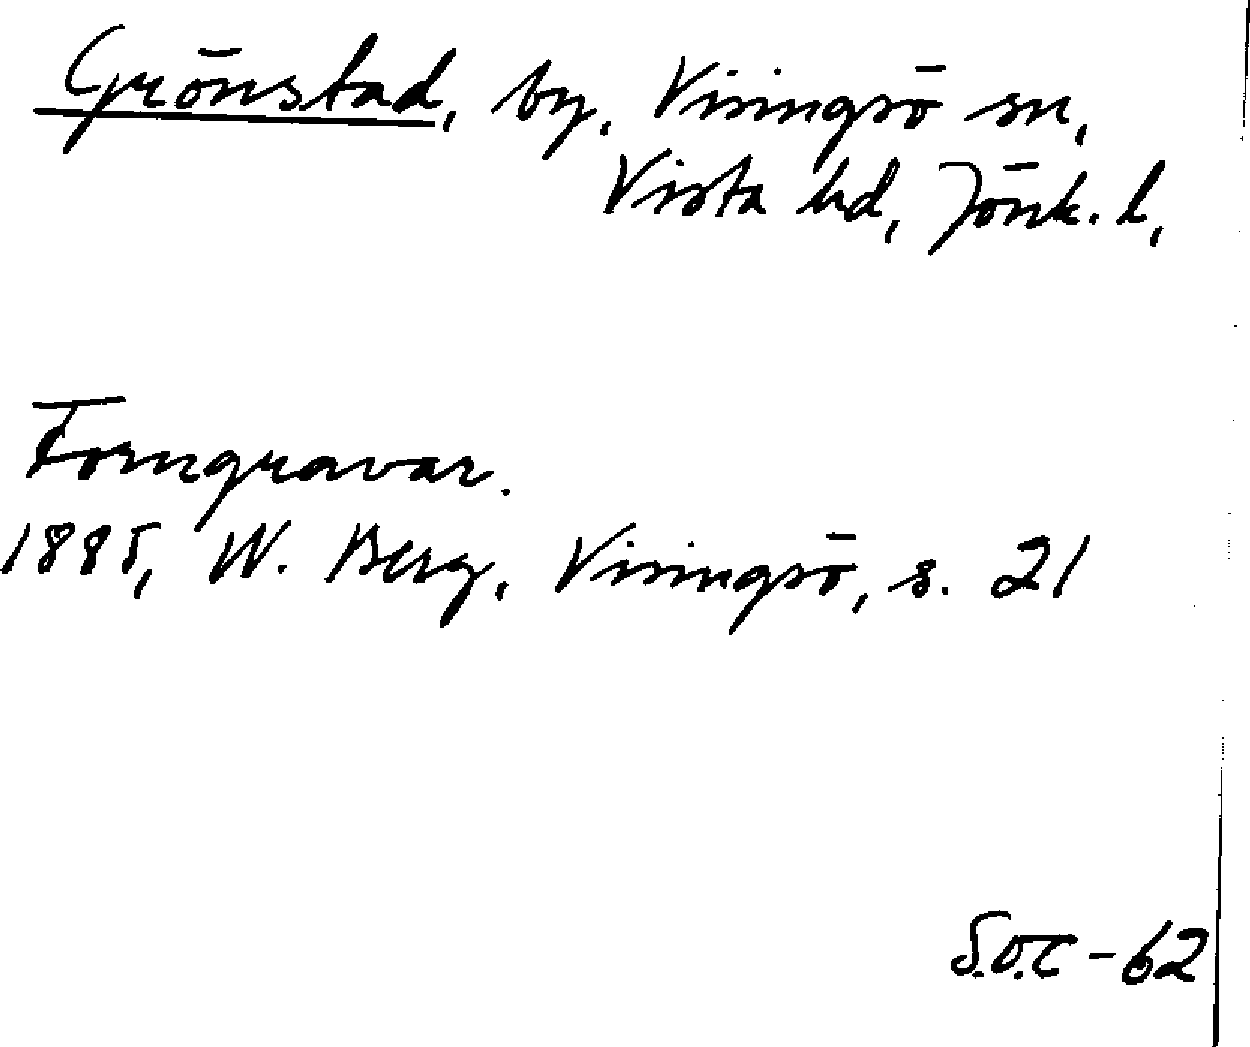 Grönstad, by, Visingsö sn,
Vista hd, Jönk. l,
Forngravar.
1885, W. Berg, Visingsö, s. 21
S.O.C-62